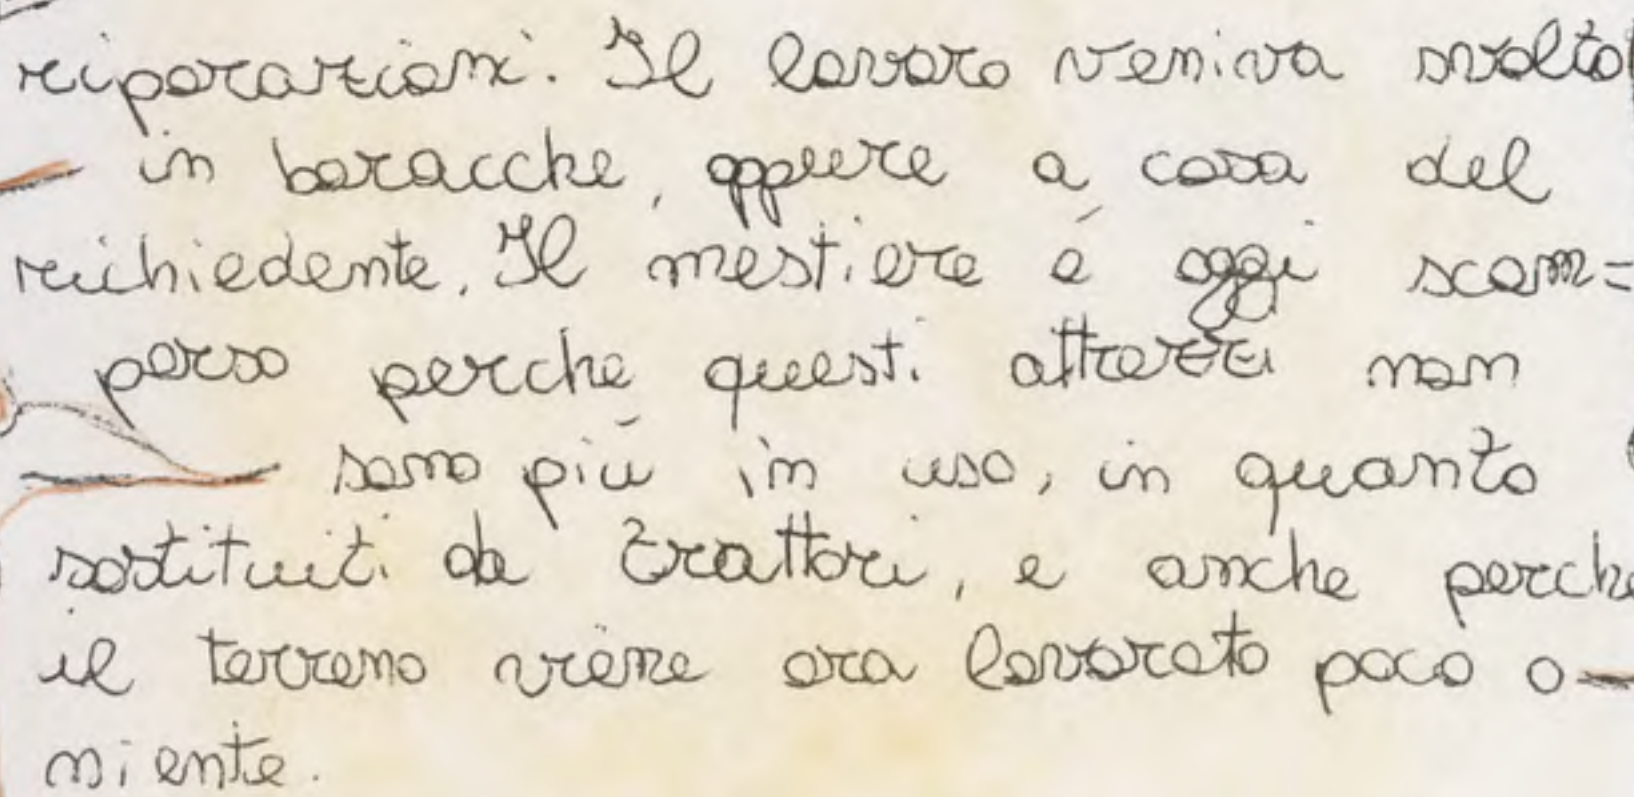 riparazioni. Il lavoro veniva svolto
in baracche, oppure a casa del
richiedente. Il mestiere é oggi scom=
parso perche questi attrezzi non
sono più in uso, in quanto
sostituiti da trattori, e anche perche
il terreno viene ora lavorato poco o
niente.